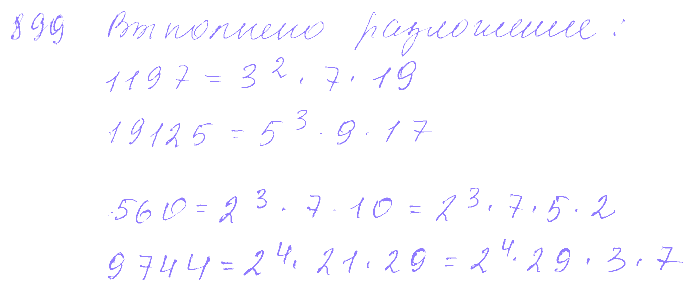 899 Выполнено разложение:
1197 = 3² · 7 · 19
19125 = 5³ · 9 · 17
560 = 2³ · 7 · 10 = 2³ · 7 · 5 · 2
9744 = 2⁴ · 21 · 29 = 2⁴ · 29 · 3 · 7